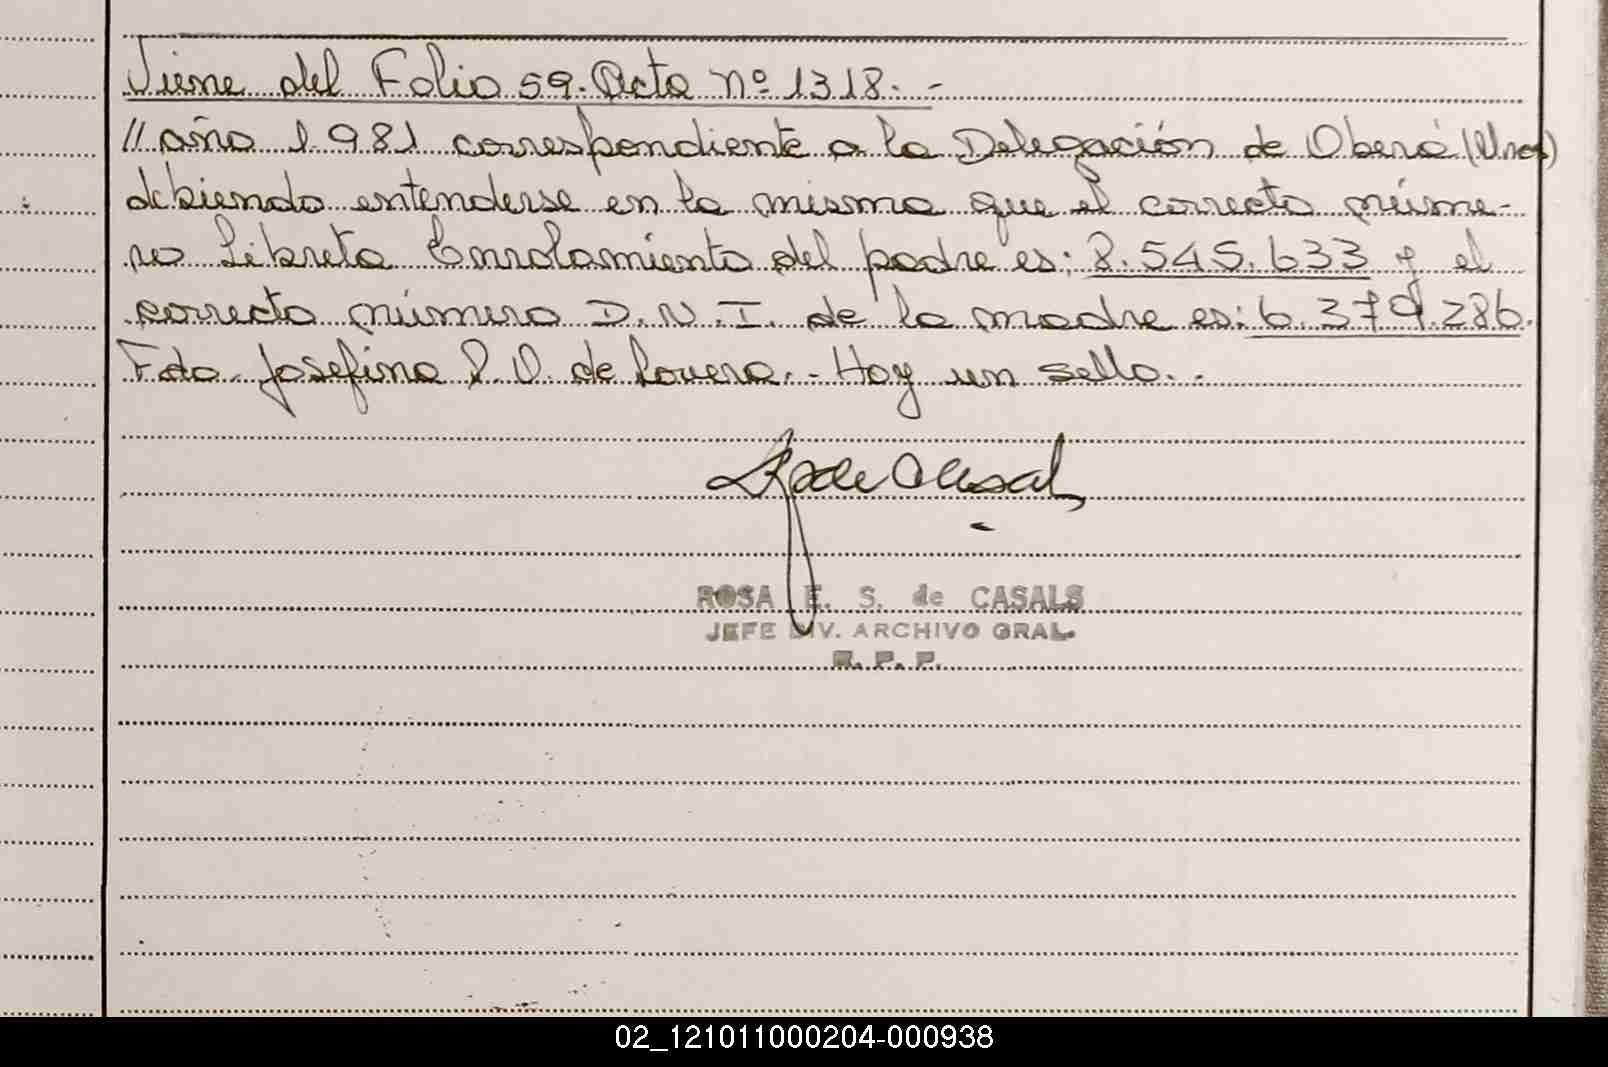 Viene del Folio 59. Acta Nº 1318. -
// año 1981 correspondiente a la Delegación de Oberá (Mnes)
debiendo entenderse en la misma que el correcto núme-
ro Libreta Enrolamiento del padre es: 8.545.633 y el
correcto número D.N.I. de la madre es: 6.379.286.
Fdo. Josefina P. O. de Lovera. - Hay un sello. -
ROSA E. S. de CASALS
JEFE DIV. ARCHIVO GRAL.
R. P. P.
02_121011000204-000938